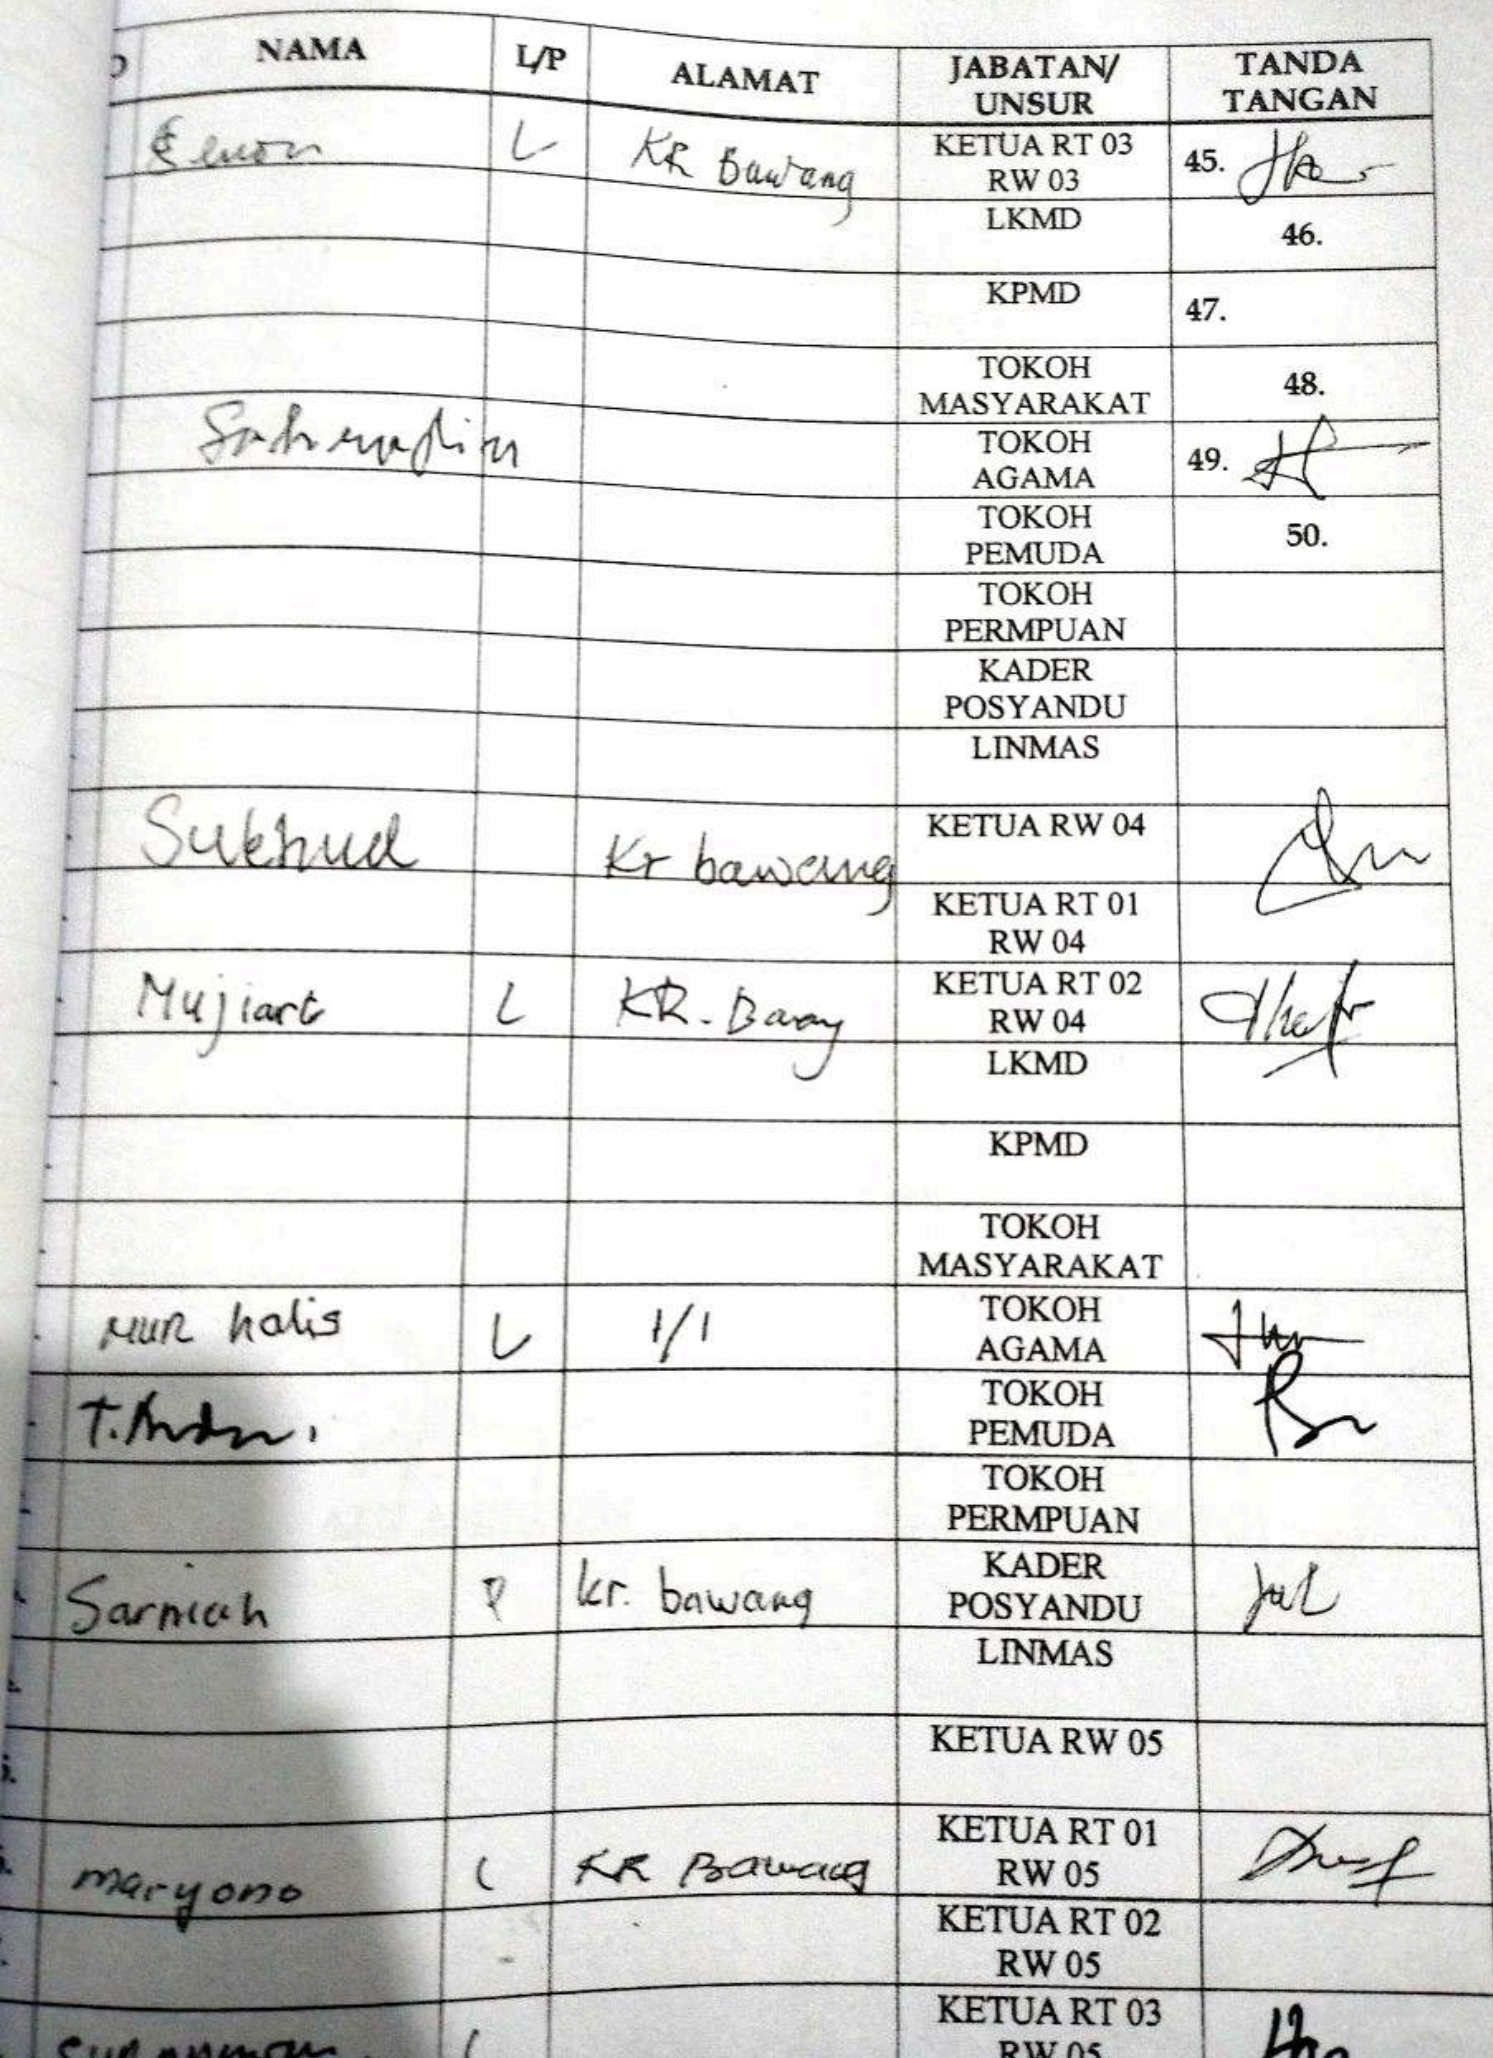 NAMA L/P ALAMAT JABATAN/ UNSUR TANDA TANGAN
L KR Bawang KETUA RT 03 RW 03 45.
LKMD 46.
KPMD 47.
TOKOH MASYARAKAT 48.
TOKOH AGAMA 49.
TOKOH PEMUDA 50.
TOKOH PERMPUAN
KADER POSYANDU
LINMAS
Sukhud Kr bawang KETUA RW 04
KETUA RT 01 RW 04
Mujiart L KR. KETUA RT 02 RW 04
LKMD
KPMD
TOKOH MASYARAKAT
Nur halis L 1/1 TOKOH AGAMA
TOKOH PEMUDA
TOKOH PERMPUAN
Sarniah P kr. bawang KADER POSYANDU
LINMAS
KETUA RW 05
maryono L KR Bawang KETUA RT 01 RW 05
KETUA RT 02 RW 05
L KETUA RT 03 RW 05